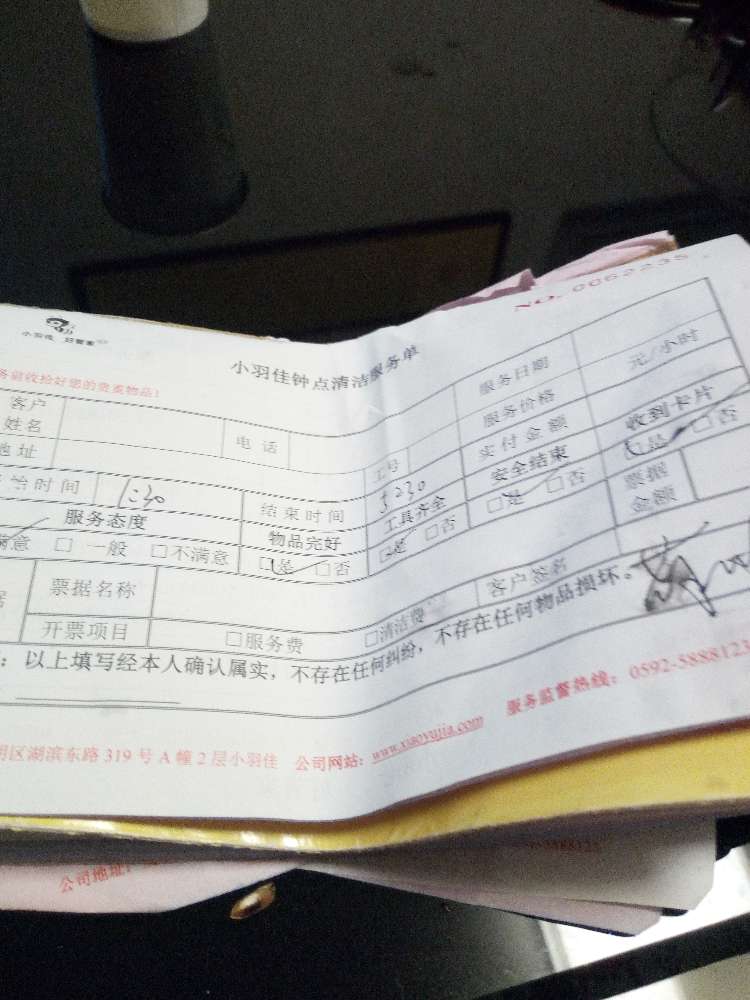 NO. 0062235
小羽佳 好管家
小羽佳钟点清洁服务单
收拾好您的贵重物品!
客户姓名 电话 服务日期
地址 工号 服务价格 元/小时
时间 1:30 结束时间 5:30 实付金额 收到卡片
服务态度 物品完好 工具齐全 安全结束 □是 □否
满意 □一般 □不满意 □是 □否 □是 □否 □是 □否 票据金额
票据名称 客户签名
开票项目 □服务费 □清洁费
:以上填写经本人确认属实,不存在任何纠纷,不存在任何物品损坏。
区湖滨东路 319 号 A 幢 2 层小羽佳 公司网站:www.xiaoyujia.com 服务监督热线:0592-5888123
公司地址: